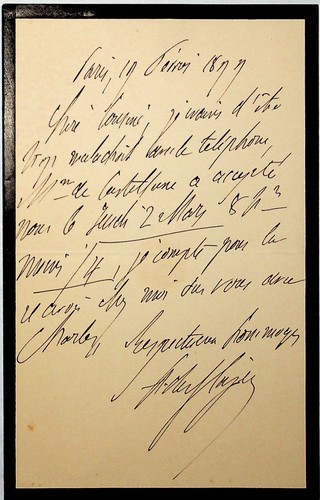 Paris, 19 Février 1899
Chère Cousine, je viens d'être
trop maladroit dans le téléphone,
Mme de Castellane a accepté
pour le Jeudi 2 Mars 8 hres
moins 1/4, je compte pour la
chez moi sur vous avec
Charles, Respectueux hommages